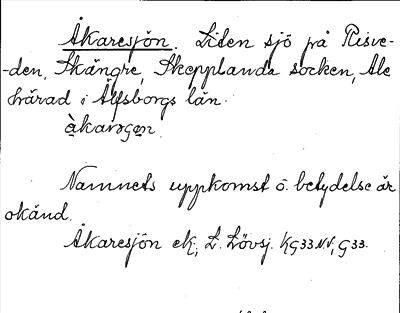 Åkaresjön. Liten sjö på Risve-
-den, Skängre, Skepplanda socken, Ale
härad i Älfsborgs län.
Namnets uppkomst o. betydelse är
okänd.
Åkaresjön ek, L. Lövsj. KG33NV, G33.